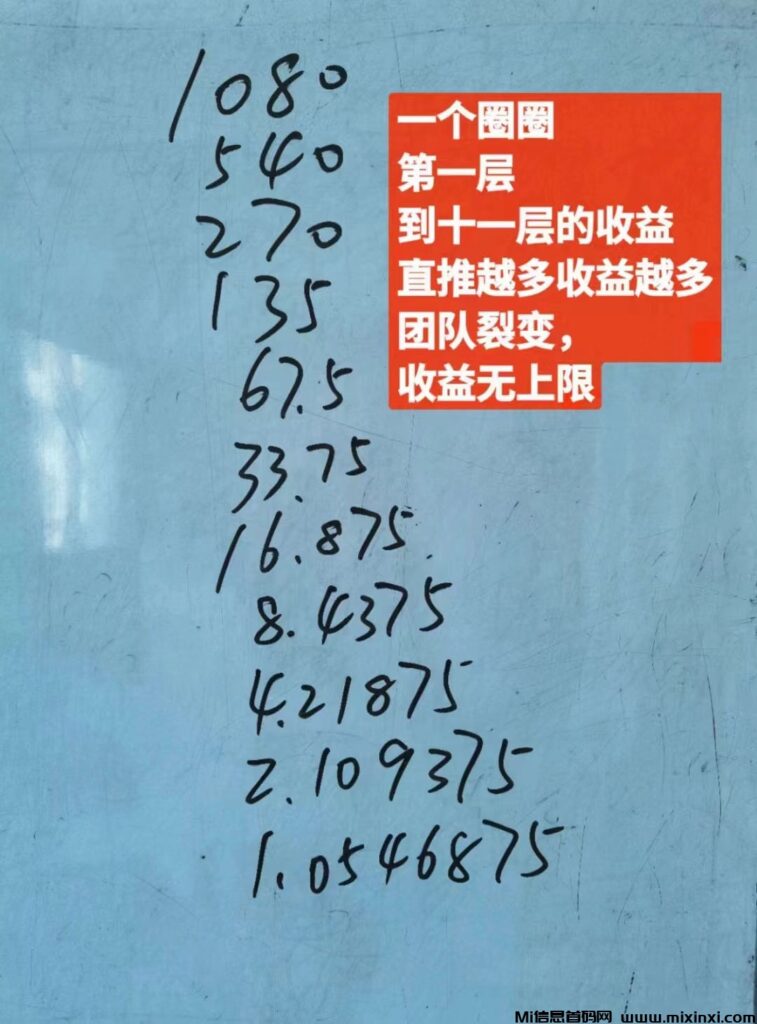 1080
540
270
135
67.5
33.75
16.875
8.4375
4.21875
2.109375
1.0546875
一个圈圈
第一层
到十一层的收益
直推越多收益越多
团队裂变，
收益无上限
Mi信息首码网 www.mixinxi.com